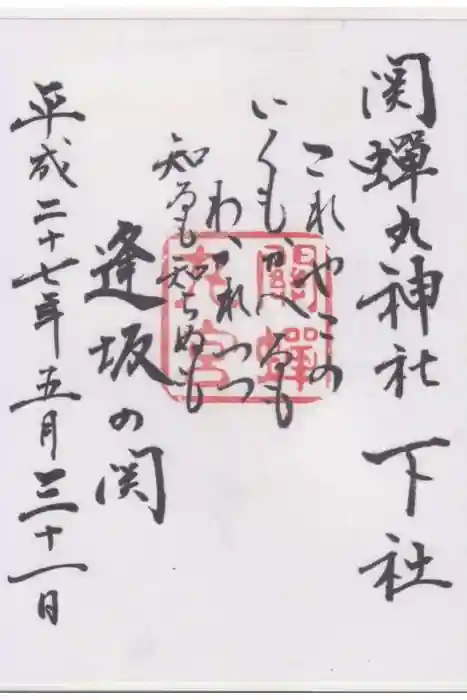 関蟬丸神社 下社
これやこの
いくもかへるも
わかれつつ
知るも知らぬも
逢坂の関
平成二十七年五月三十一日
關蟬
丸宮